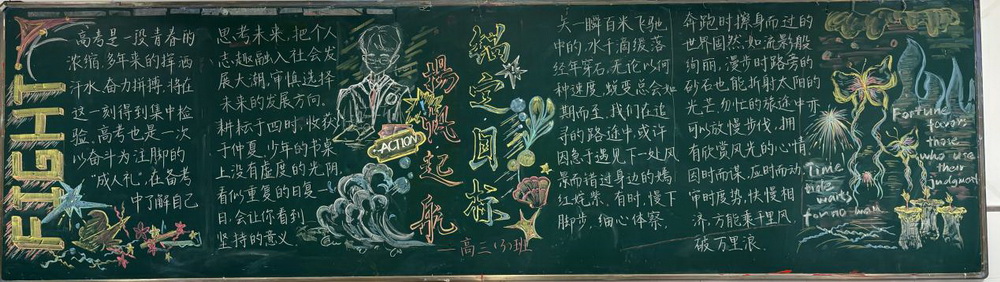 FIGHT
高考是一段青春的
浓缩,多年来的挥洒
汗水、奋力拼搏,将在
这一刻得到集中检
验。高考也是一次
以奋斗为注脚的
“成人礼”,在备考
中了解自己
思考未来,把个人
志趣融入社会发
展大潮,审慎选择
未来的发展方向。
耕耘于四时,收获
于仲夏,少年的书桌
上没有虚度的光阴,
看似重复的日复一
日,会让你看到
坚持的意义。
ACTION
扬帆起航
锚定目标
高三(3)班
矢一瞬百米飞驰
中的,水千滴缓落
经年穿石,无论以何
种速度,蜕变总会如
期而至,我们在追
寻的路途中,或许
因急于遇见下一处风
景而错过身边的嫣
红姹紫,有时,慢下
脚步,细心体察,
奔跑时擦身而过的
世界固然如流彩般
绚丽,漫步时路旁的
砂石也能折射太阳的
光芒,匆忙的旅途中亦
可以放慢步伐,拥
有欣赏风光的心情
因时而谋,应时而动,
审时度势,快慢相
济,方能乘千里风,
破万里浪。
Time
tide
waits
for no man
Fortune
favors
those
who use
their
judgment